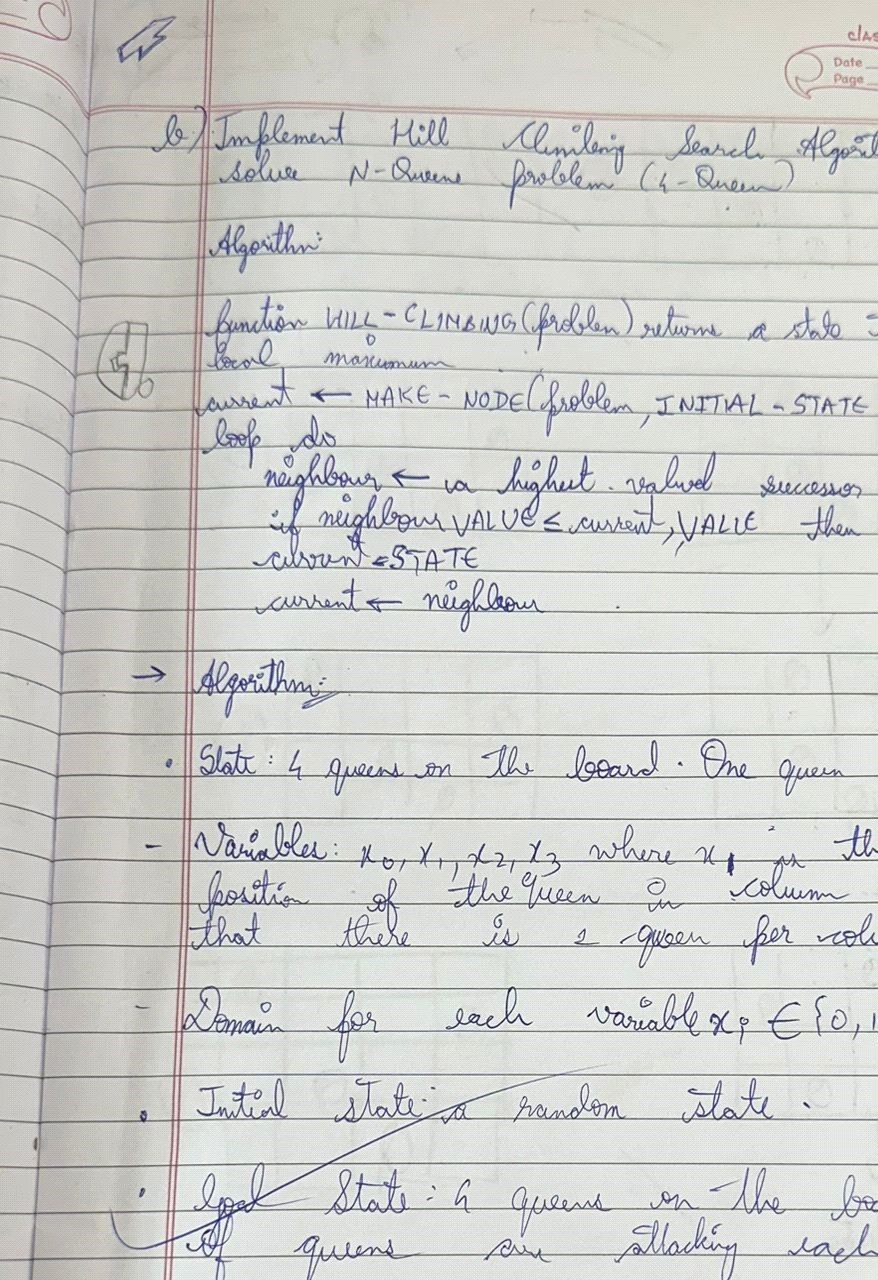 clAS
Date
Page
b) Implement Hill Climbing Search Algorit
solve N-Queens problem (4-Queen)
Algorithm:
function HILL-CLIMBING(problem) returns a state
local maximum
current ← MAKE-NODE(problem, INITIAL-STATE
loop do
neighbour ← a highest. valued successor
if neighbour VALUE ≤ current, VALUE then
current = STATE
current ← neighbour
→ Algorithm:
• State: 4 queens on the board. One queen
- Variables: x0, x1, x2, x3 where xi is th
position of the queen in column
that there is 1 queen per colu
- Domain for each variable xi ∈ {0, 1
• Initial state: a random state.
• Goal State: 4 queens on the boa
of queens are attacking each